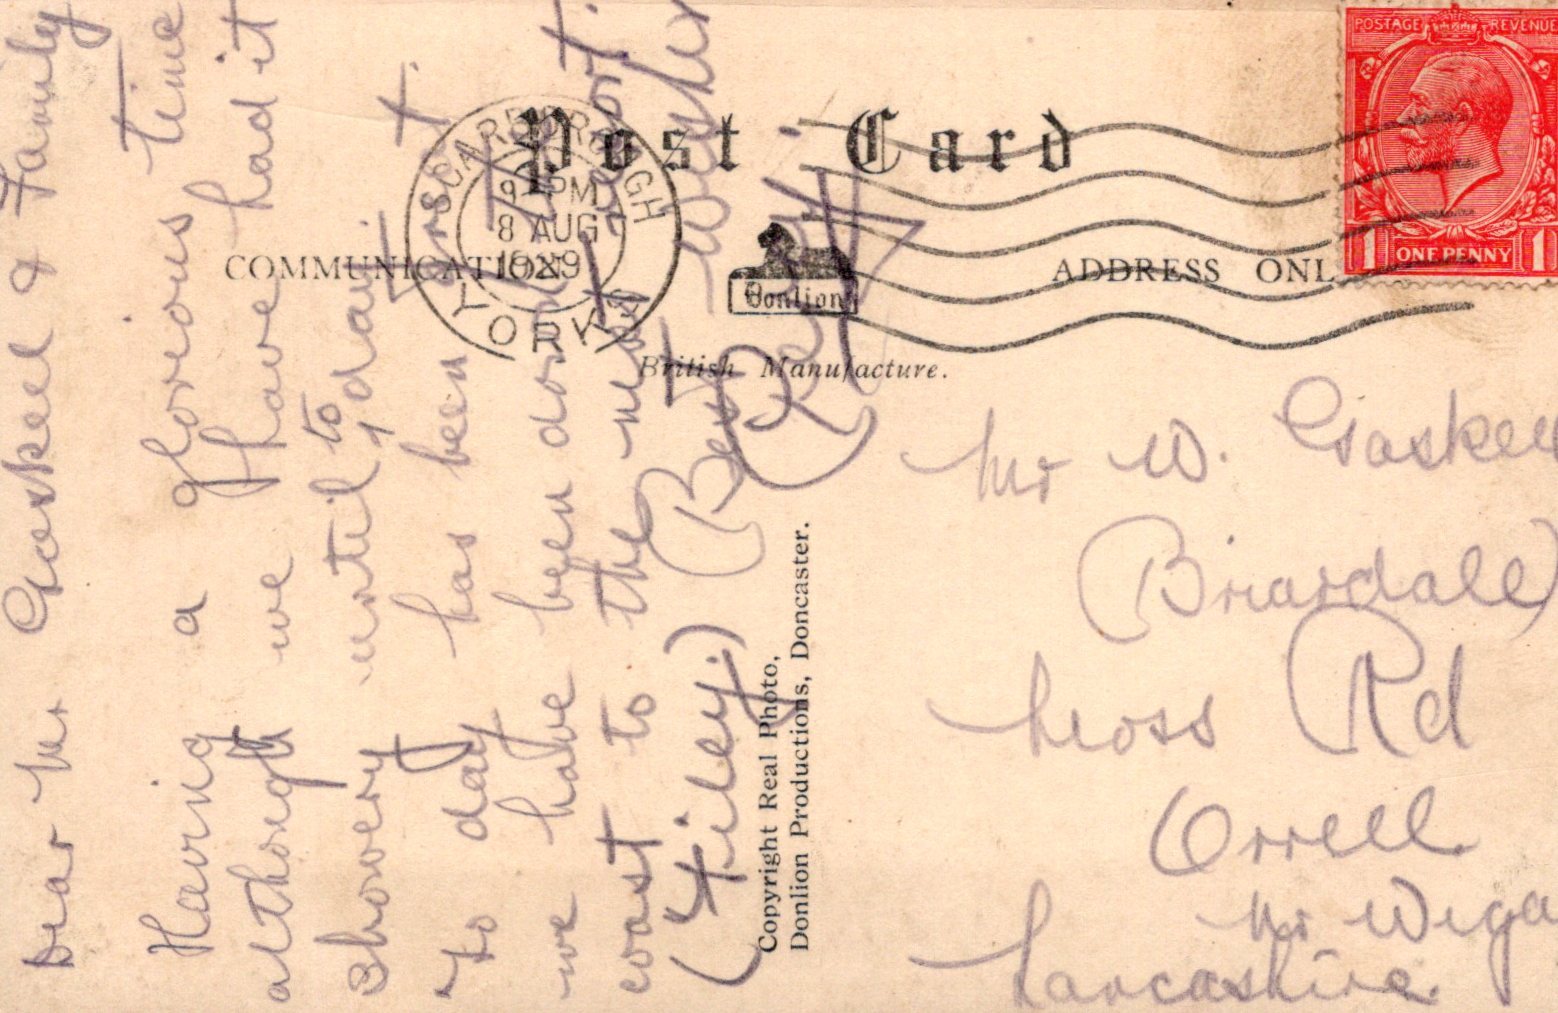 Post Card
COMMUNICATION
ADDRESS ONL
POSTAGE REVENUE
1 ONE PENNY 1
SCARBOROUGH
PM
8 AUG
1929
YORKS
Donlion
British Manufacture.
Copyright Real Photo,
Donlion Productions, Doncaster.
Dear Mr Gaskell & Family
Having a glorious time
although we have had it
showery until to day, it
to day has been
we have been down the
coast to the next
(Filey.) Best Wishes
Mr W. Gaskell
Briardale
Moss Rd
Orrell
Nr Wiga
Lancashire.